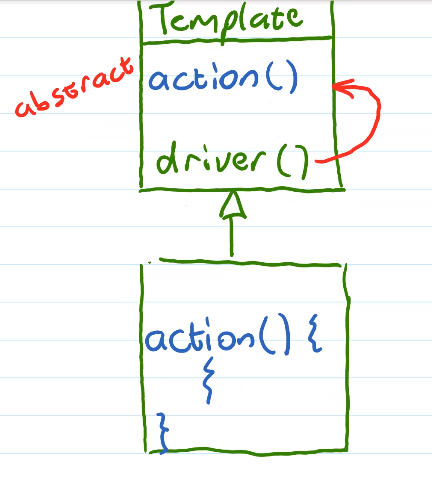 Template
abstract
action()
driver()
action() {
}